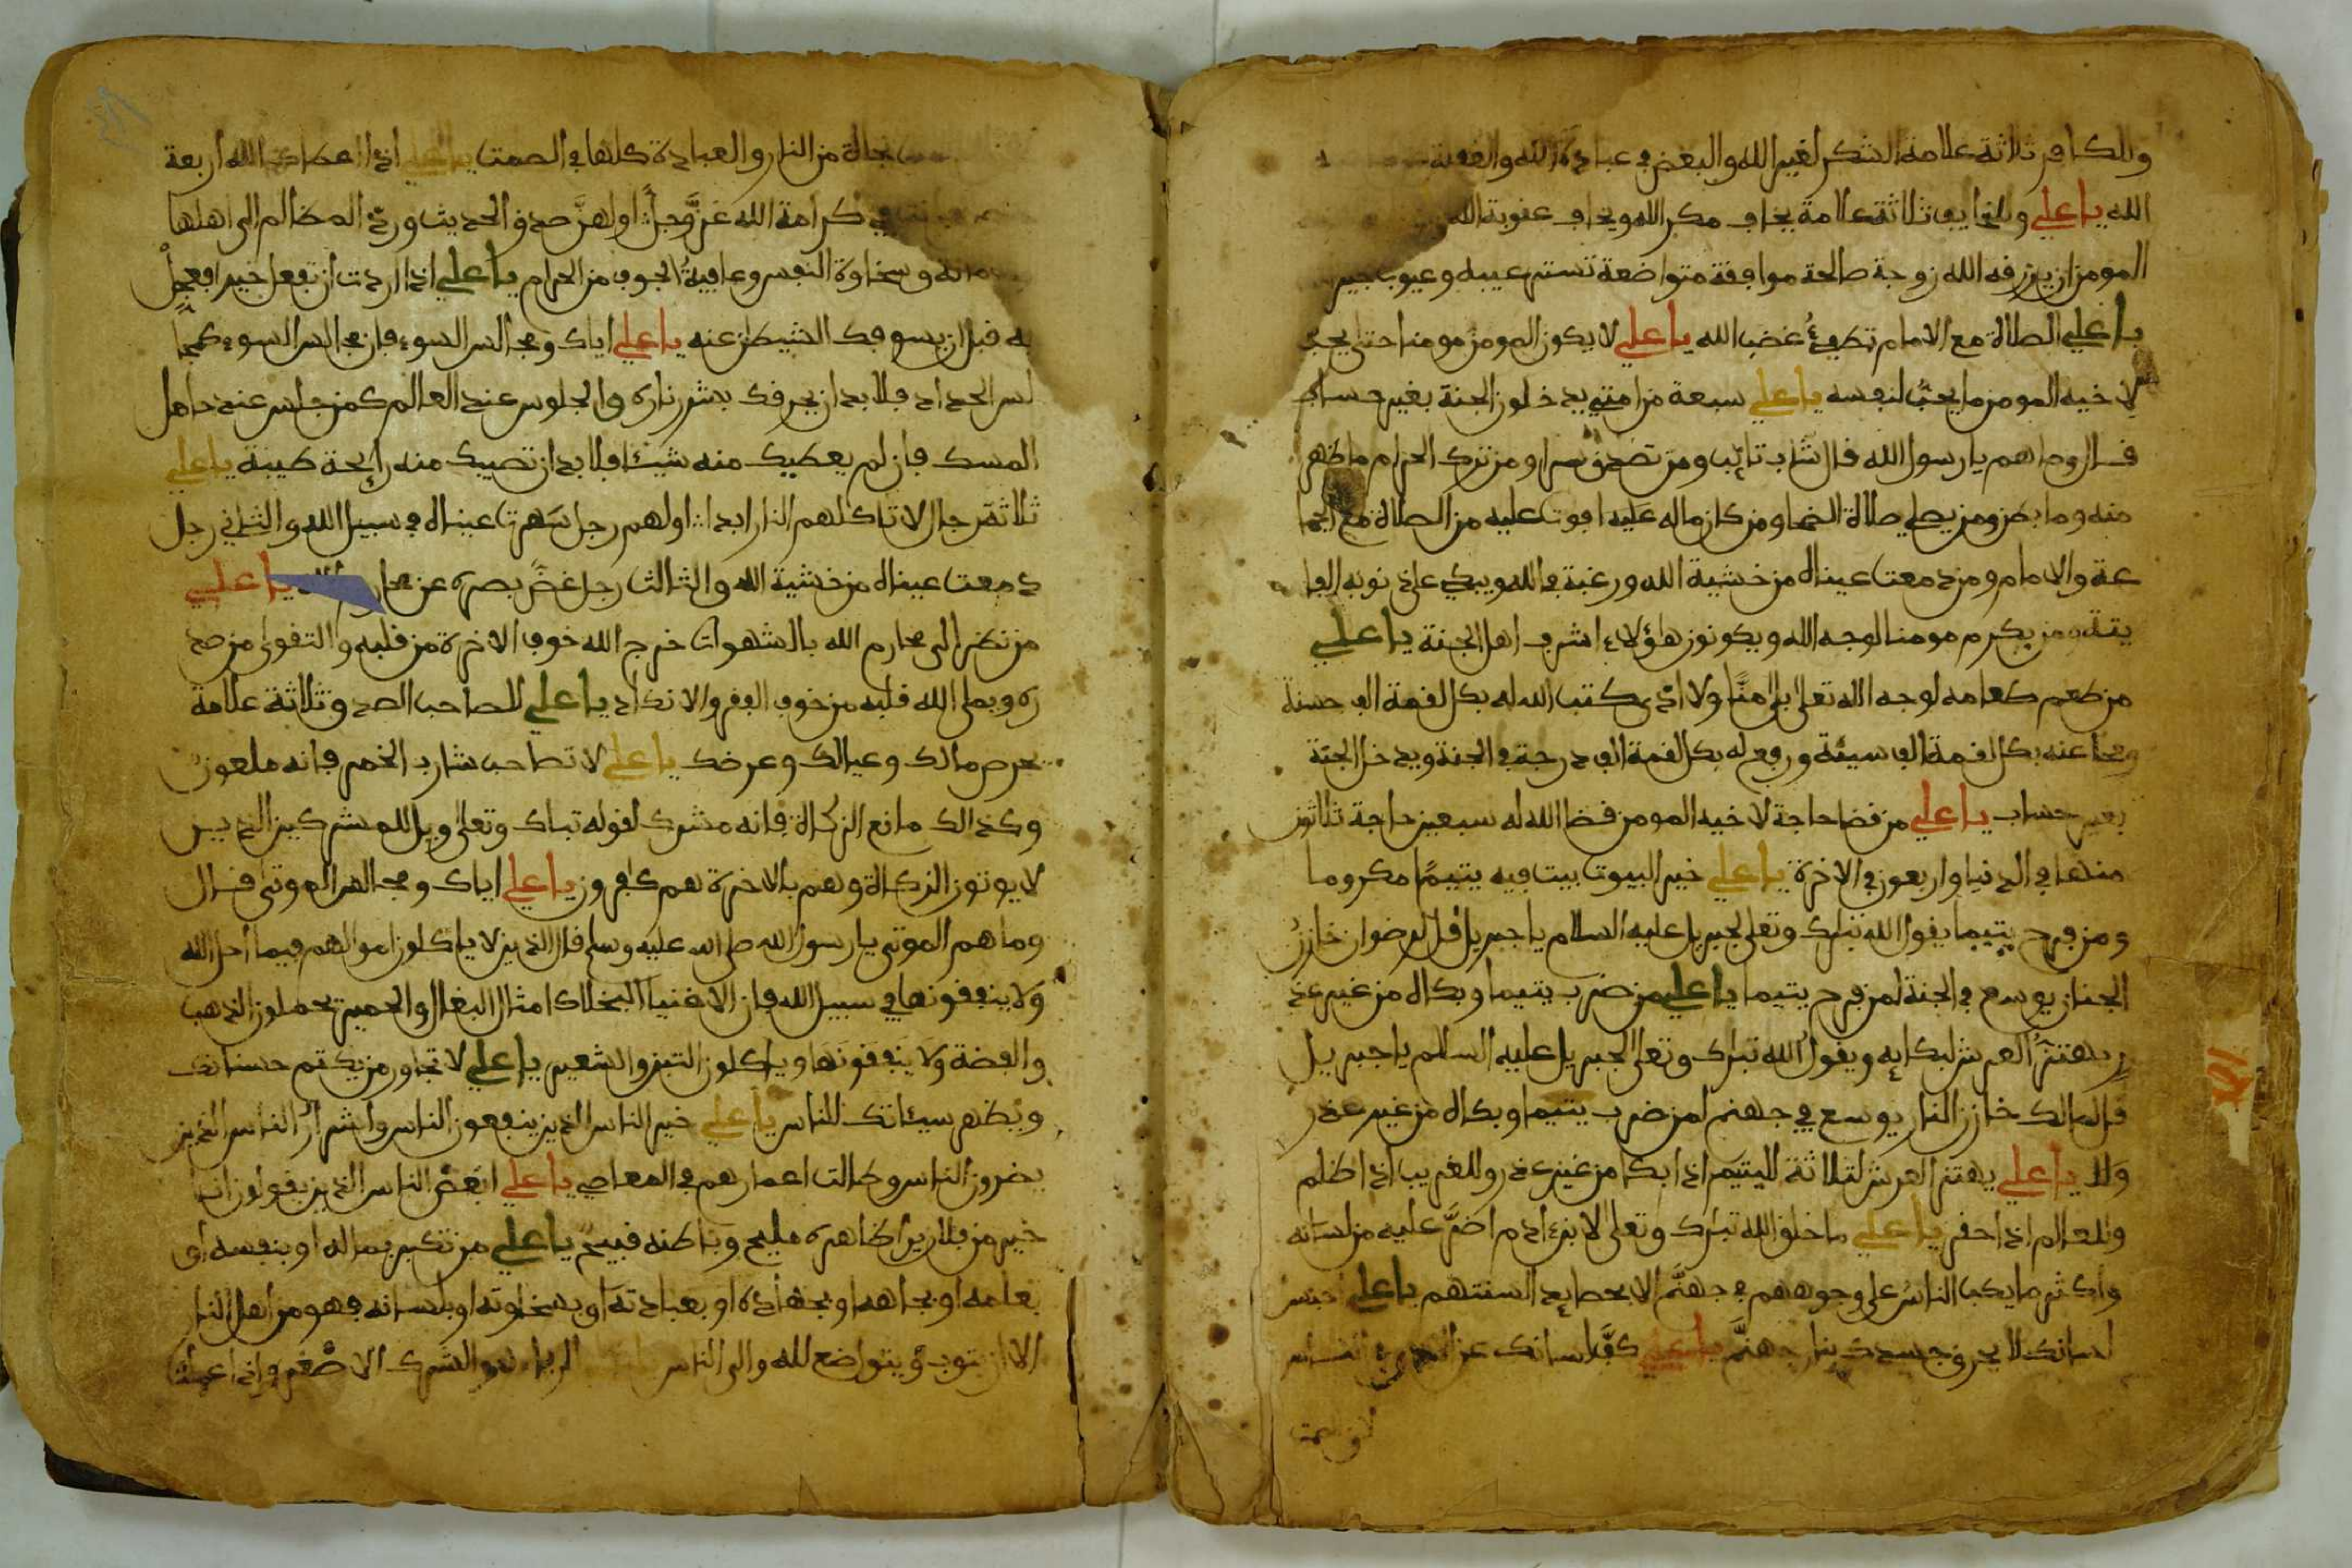 وللكافر ثلاثة علامة الشكر لغير الله والبغض في عبادة الله والغفلة
الله يا علي وللخايف ثلاثة علامة يخاف مكر الله ويخاف عقوبة الله
المومن ان يرزقه الله زوجة صالحة موافقة متواضعة تستر عيبه وعيوب
يا علي الصلاة مع الامام تطفئ غضب الله يا علي لا يكون المومن مومنا حتى يحب
لاخيه المومن ما يحب لنفسه يا علي سبعة من امتي يدخلون الجنة بغير حساب
قال وما هم يا رسول الله قال شاب تائب ومن تصدق سرا ومن ترك الحرام ما ظهر
منه وما بطن ومن يصلي صلاة الضحا ومن كان ماله عليه افوت عليه من الصلاة مع الجما
عة والامام ومن دمعت عيناه من خشية الله ورغبة في الله ويبكي على ذنوبه الفا
يتة ومن يكرم مومنا لوجه الله ويكونون هاؤلاء اشرف اهل الجنة يا علي
من طعم طعامه لوجه الله تعلى بلا منا ولا اذى كتب الله له بكل لقمة الف حسنة
ومحا عنه بكل لقمة الف سيئة ورفع له بكل لقمة الف درجة في الجنة ويدخل الجنة
بغير حساب يا علي من قضا حاجة لاخيه المومن قضا الله له سبعين حاجة ثلاثون
منها في الدنيا واربعون في الاخرة يا علي خير البيوت بيت فيه يتيما مكروما
ومن فرح يتيما يقول الله تبرك وتعلى لجبريل عليه السلام يا جبريل قل لرضوان خازن
الجنان يوسع في الجنة لمن فرح يتيما يا علي من ضرب يتيما وبكاه من غير عذ
ر يهتز العرش لبكايه ويقول الله تبرك وتعلى لجبريل عليه السلام يا جبريل
قل لمالك خازن النار يوسع في جهنم لمن ضرب يتيما وبكاه من غير عذر
ولد يا علي يهتز العرش لثلاثة لليتيم اذا بكا من غير عذر وللغريب اذا ظلم
وللعالم اذا حقر يا علي ما خلق الله تبرك وتعلى لابن ادم اضر عليه من لسانه
واكثر ما يكب الناس على وجوههم في جهنم الا بحصايد السنتهم يا علي احبس
لسانك لا يحرق جسدك بنار جهنم يا علي كف لسانك عن
نجاة من النار والعبادة كلها في الصمت يا علي اذا اعطاك الله اربعة
في كرامة الله عز وجل اولهن صدق الحديث ورد المظالم الى اهلها
وسخاوة النفس وعافية الجوف من الحرام يا علي اذا اردت ان تفعل خيرا فعجل
به قبل ان يسوفك الشيطان عنه يا علي اياك ومجالس السوء فان مجالس السوء كمجا
لس الحداد فلابد ان يحرقك بشرر ناره والجلوس عند العالم كمن جلس عند حامل
المسك فان لم يعطيك منه شيئا فلابد ان تصيبك منه رايحة طيبة يا علي
ثلاثة رجال لا تاكلهم النار ابدا اولهم رجل سهرت عيناه في سبيل الله والثاني رجل
دمعت عيناه من خشية الله والثالث رجل غض بصره عن محارم الله يا علي
من نظر الى محارم الله بالشهوات خرج الله خوف الاخرة من قلبه والتقوى من صد
ره ويملى الله قلبه من خوف الفقر والانكاد يا علي للصاحب الصدوق ثلاثة علامة
يحرص مالك وعيالك وعرضك يا علي لا تصاحب شارب الخمر فانه ملعون
وكذالك مانع الزكاة فانه مشرك لقوله تبارك وتعلى ويل للمشركين الذين
لا يوتون الزكاة وهم بالاخرة هم كافرون يا علي اياك ومجالس الموتى قال
وما هم الموتى يا رسول الله صلى الله عليه وسلم قال الذين لا ياكلون اموالهم فيما احل الله
ولا ينفقونها في سبيل الله فان الاغنيا البخلا كامثال البغال والحمير تحملون الذهب
والفضة ولا ينفقونها وياكلون التبن والشعير يا علي لا تجاور من يكتم حسناتك
ويظهر سيئاتك للناس يا علي خير الناس الذين ينفعون الناس واشرار الناس الذين
يضرون الناس وطالت اعمارهم في المعاصي يا علي ابغض الناس الذين يقولون انا
خير من فلان يرا ظاهره مليح وباطنه قبيح يا علي من تكبر بماله او بنفسه او
بعلمه او بجاهه او او بعبادته او بسخاوته او بلسانه فهو من اهل النار
الا ان يتوب ويتواضع لله والى الناس يا علي الرياء هو الشرك الاصغر واذا عملت